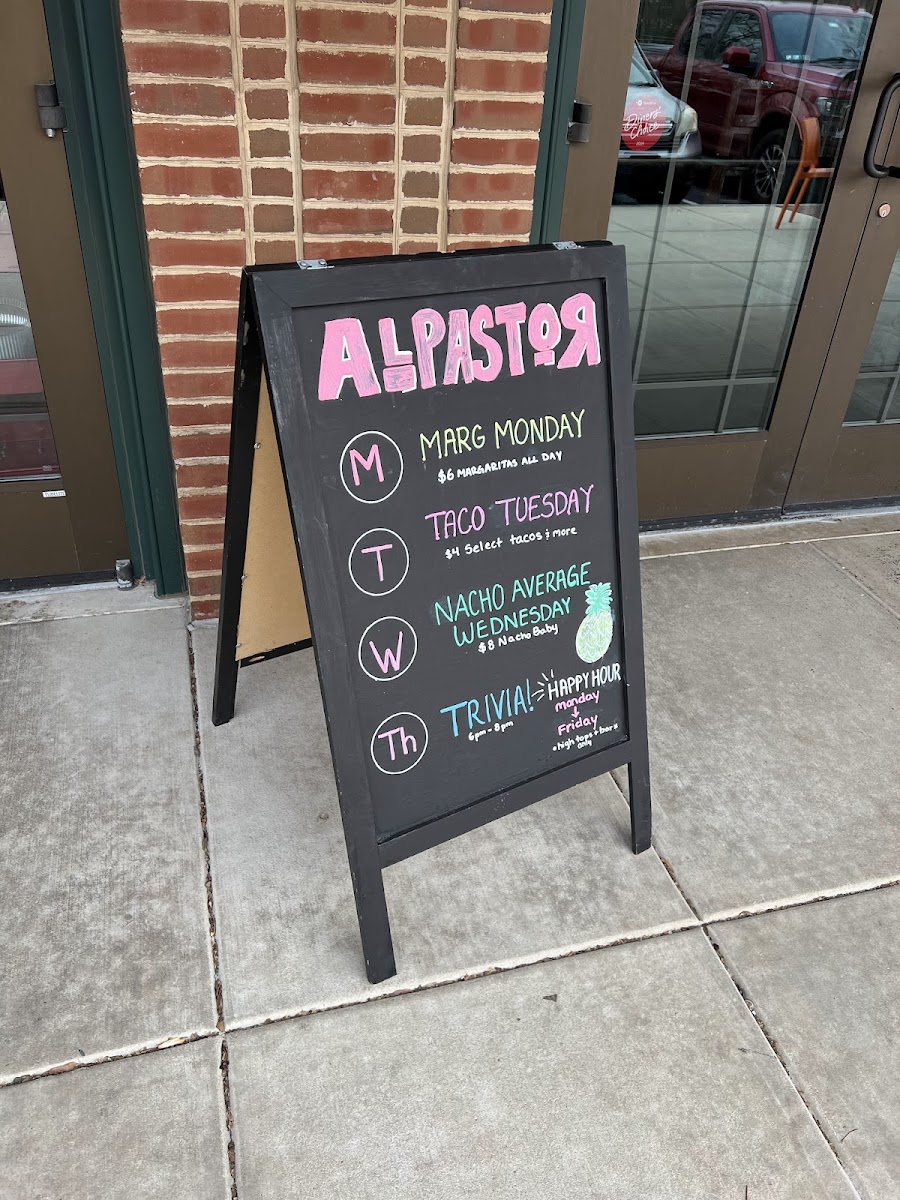 Diners'
Choice
ALPASTOR
M
MARG MONDAY
$6 MARGARITAS ALL DAY
T
TACO TUESDAY
$4 Select tacos & more
W
NACHO AVERAGE
WEDNESDAY
$8 Nacho Baby
Th
TRIVIA!
6pm - 8pm
HAPPY HOUR
monday
↓
Friday
*high tops + bar*
only